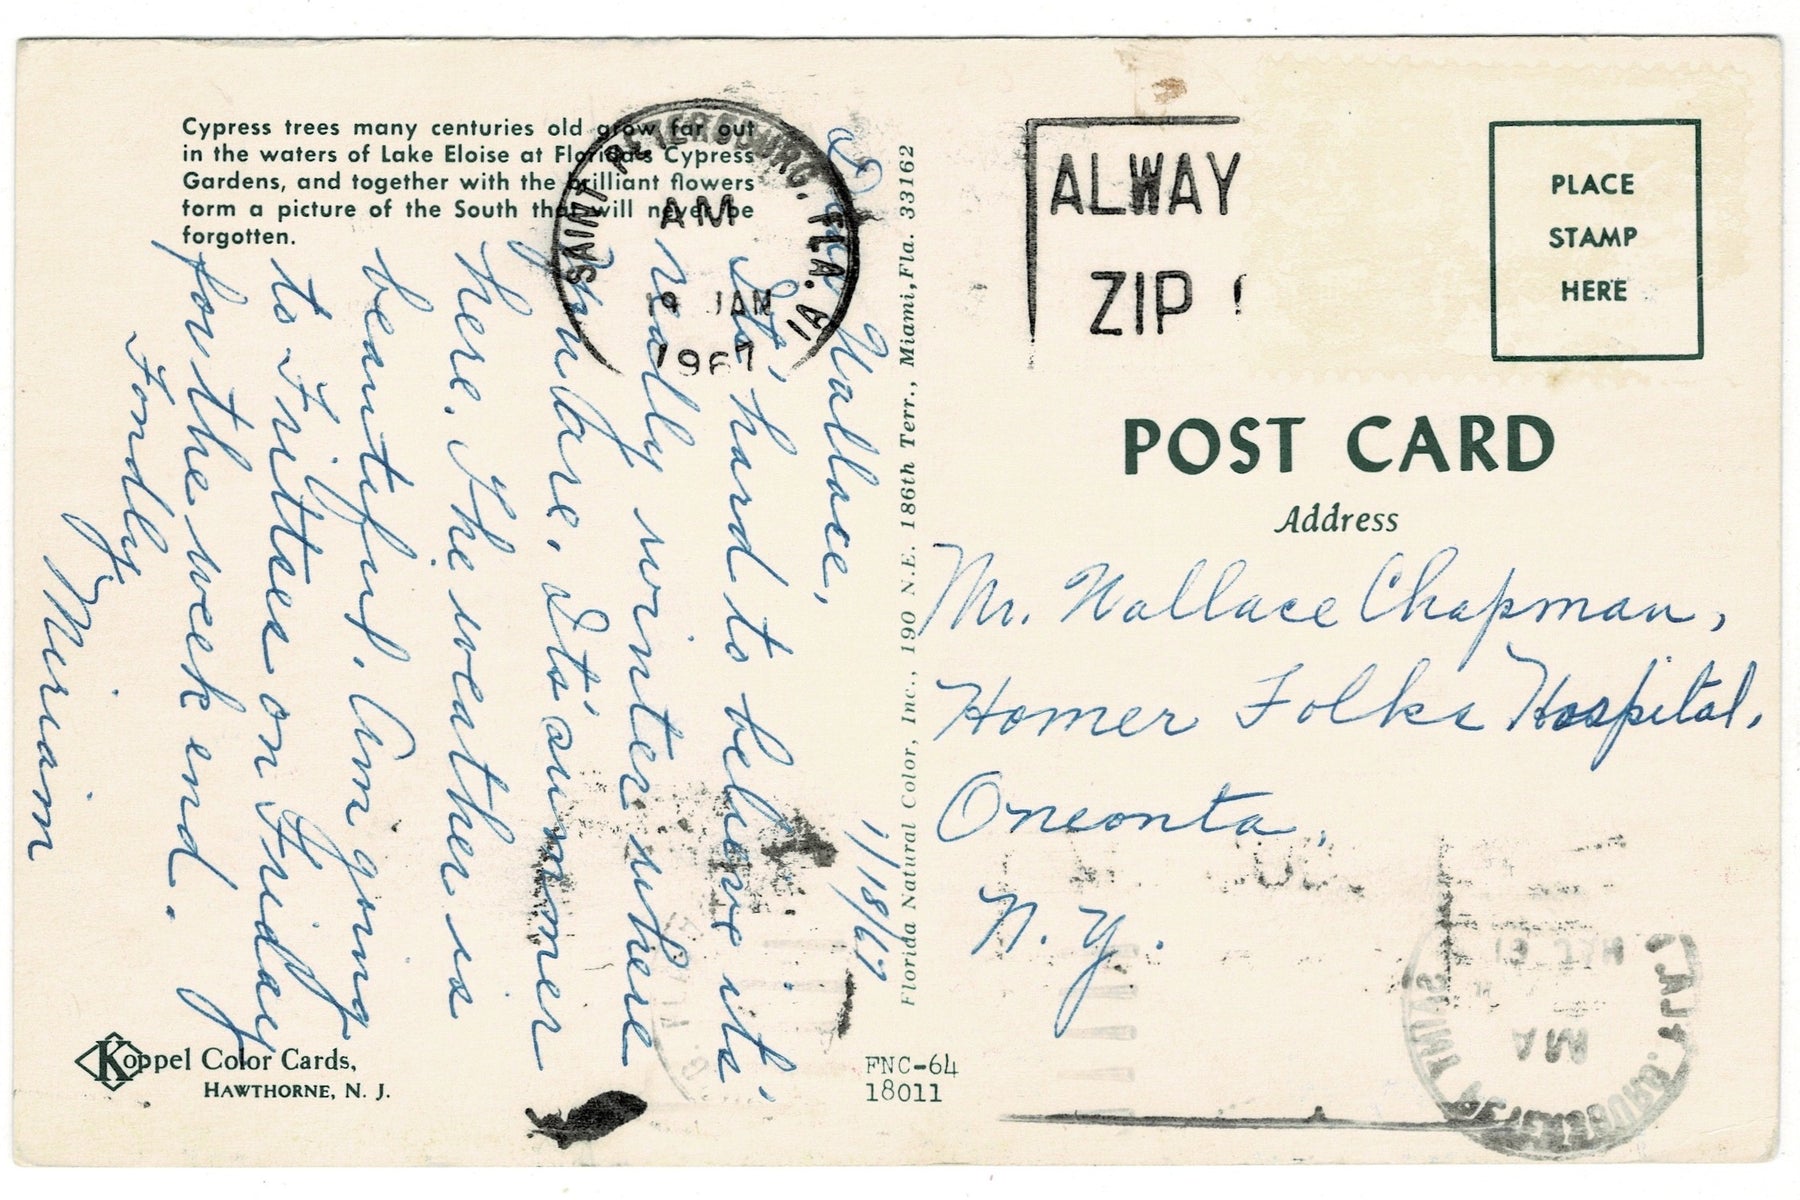 Cypress trees many centuries old grow far out
in the waters of Lake Eloise at Florida's Cypress
Gardens, and together with the brilliant flowers
form a picture of the South that will never be
forgotten.
SAINT PETERSBURG, FLA.
AM
19 JAN
1967
1/18/67
Dear Wallace,
Its' hard to believe its'
really winter where
you are. Its' summer
here. The weather is
beautiful. Am going
to Fritties on Friday
for the week end.
Fondly,
Miriam
Koppel Color Cards,
HAWTHORNE, N. J.
Florida Natural Color, Inc., 190 N.E. 186th Terr., Miami, Fla. 33162
FNC-64
18011
ALWAY
ZIP
PLACE
STAMP
HERE
POST CARD
Address
Mr. Wallace Chapman,
Homer Folks Hospital,
Oneonta,
N. Y.
SAINT PETERSBURG, FLA.
AM
19 JAN